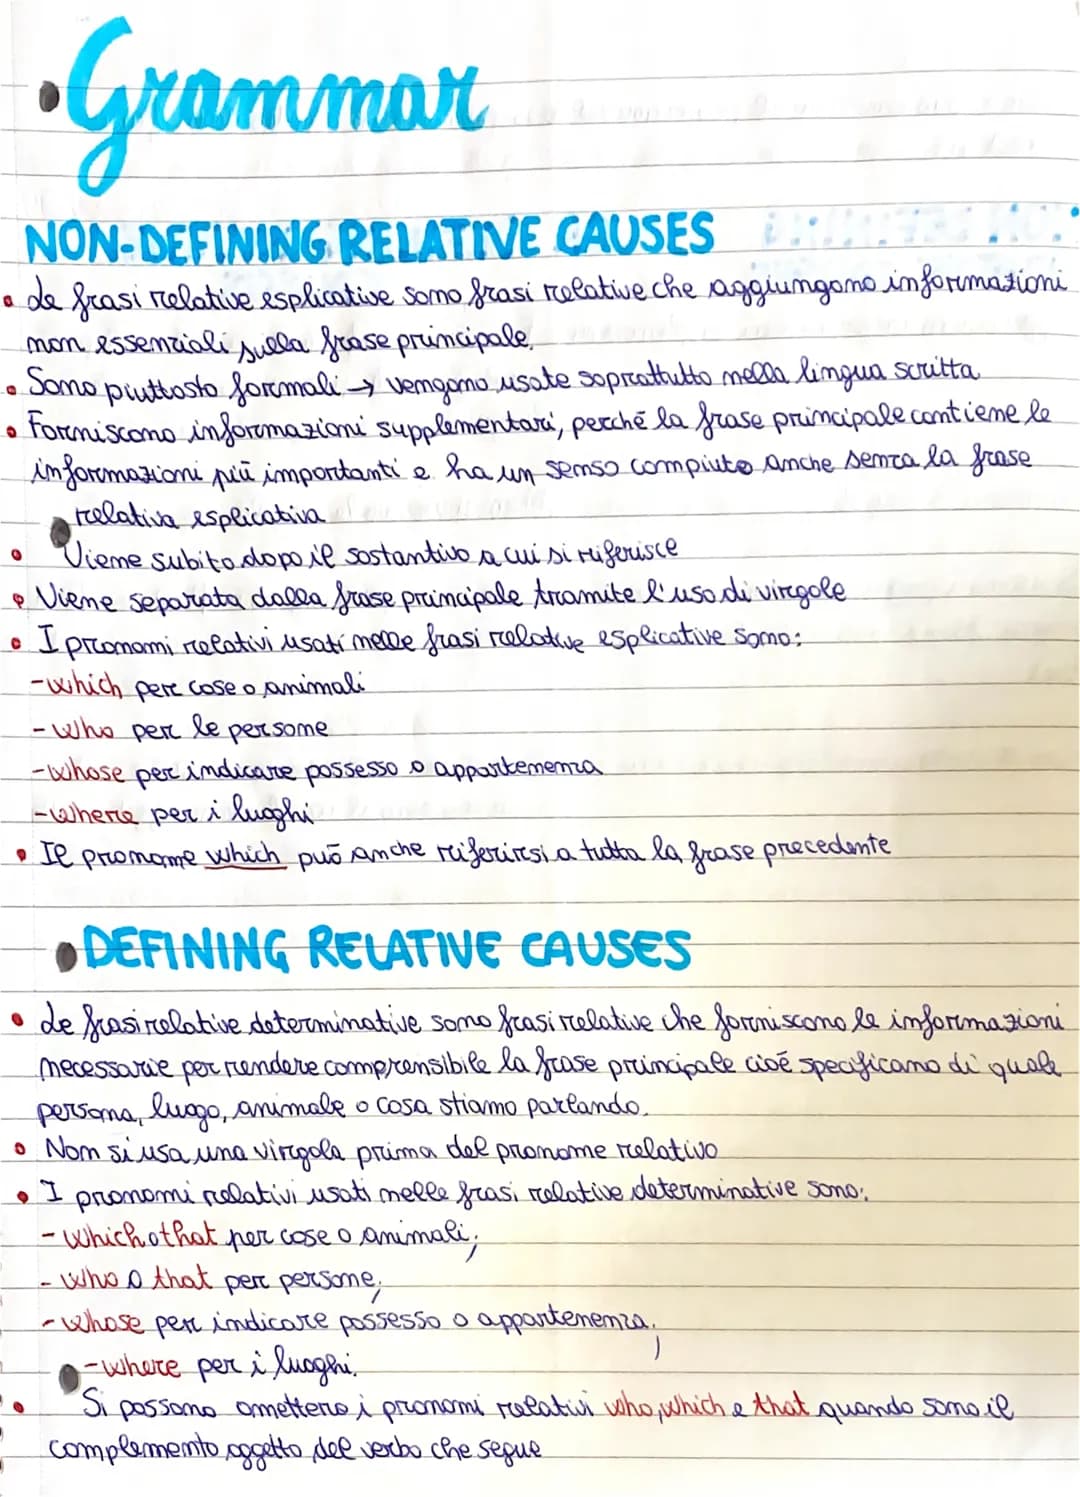 Grammar
NON-DEFINING RELATIVE CAUSES
• Le frasi relative esplicative sono frasi relative che aggiungono informazioni
non essenziali sulla frase principale.
• Sono piuttosto formali → vengono usate soprattutto nella lingua scritta
• Forniscono informazioni supplementari, perché la frase principale contiene le
informazioni più importanti e ha un senso compiuto anche senza la frase
relativa esplicativa
• Viene subito dopo il sostantivo a cui si riferisce
• Viene separata dalla frase principale tramite l'uso di virgole
• I pronomi relativi usati nelle frasi relative esplicative sono:
-which per cose o animali
-who per le persone
-whose per indicare possesso o appartenenza
-where per i luoghi
• Il pronome which può anche riferirsi a tutta la frase precedente
DEFINING RELATIVE CAUSES
• Le frasi relative determinative sono frasi relative che forniscono le informazioni
necessarie per rendere comprensibile la frase principale cioè specificano di quale
persona, luogo, animale o cosa stiamo parlando.
• Non si usa una virgola prima del pronome relativo
• I pronomi relativi usati nelle frasi relative determinative sono:
- which o that per cose o animali;
- who o that per persone;
- whose per indicare possesso o appartenenza;
- where per i luoghi.
• Si possono omettere i pronomi relativi who, which e that quando sono il
complemento oggetto del verbo che segue